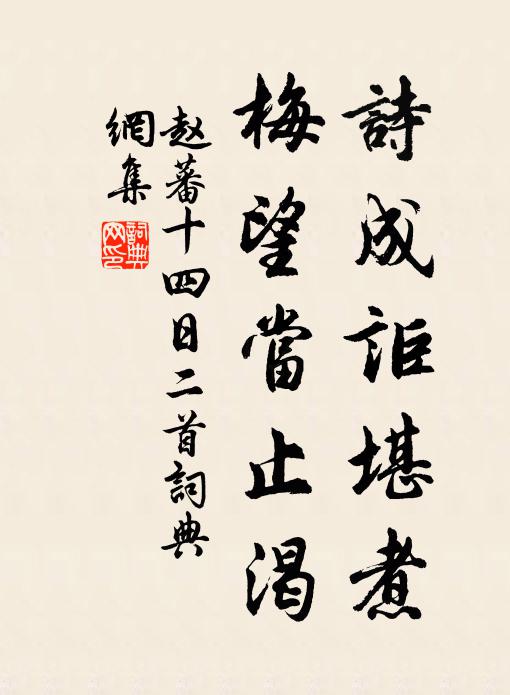 詩成詎堪煮
梅望當止渴
赵蕃十四日二首詞典
網集
詞典
网印